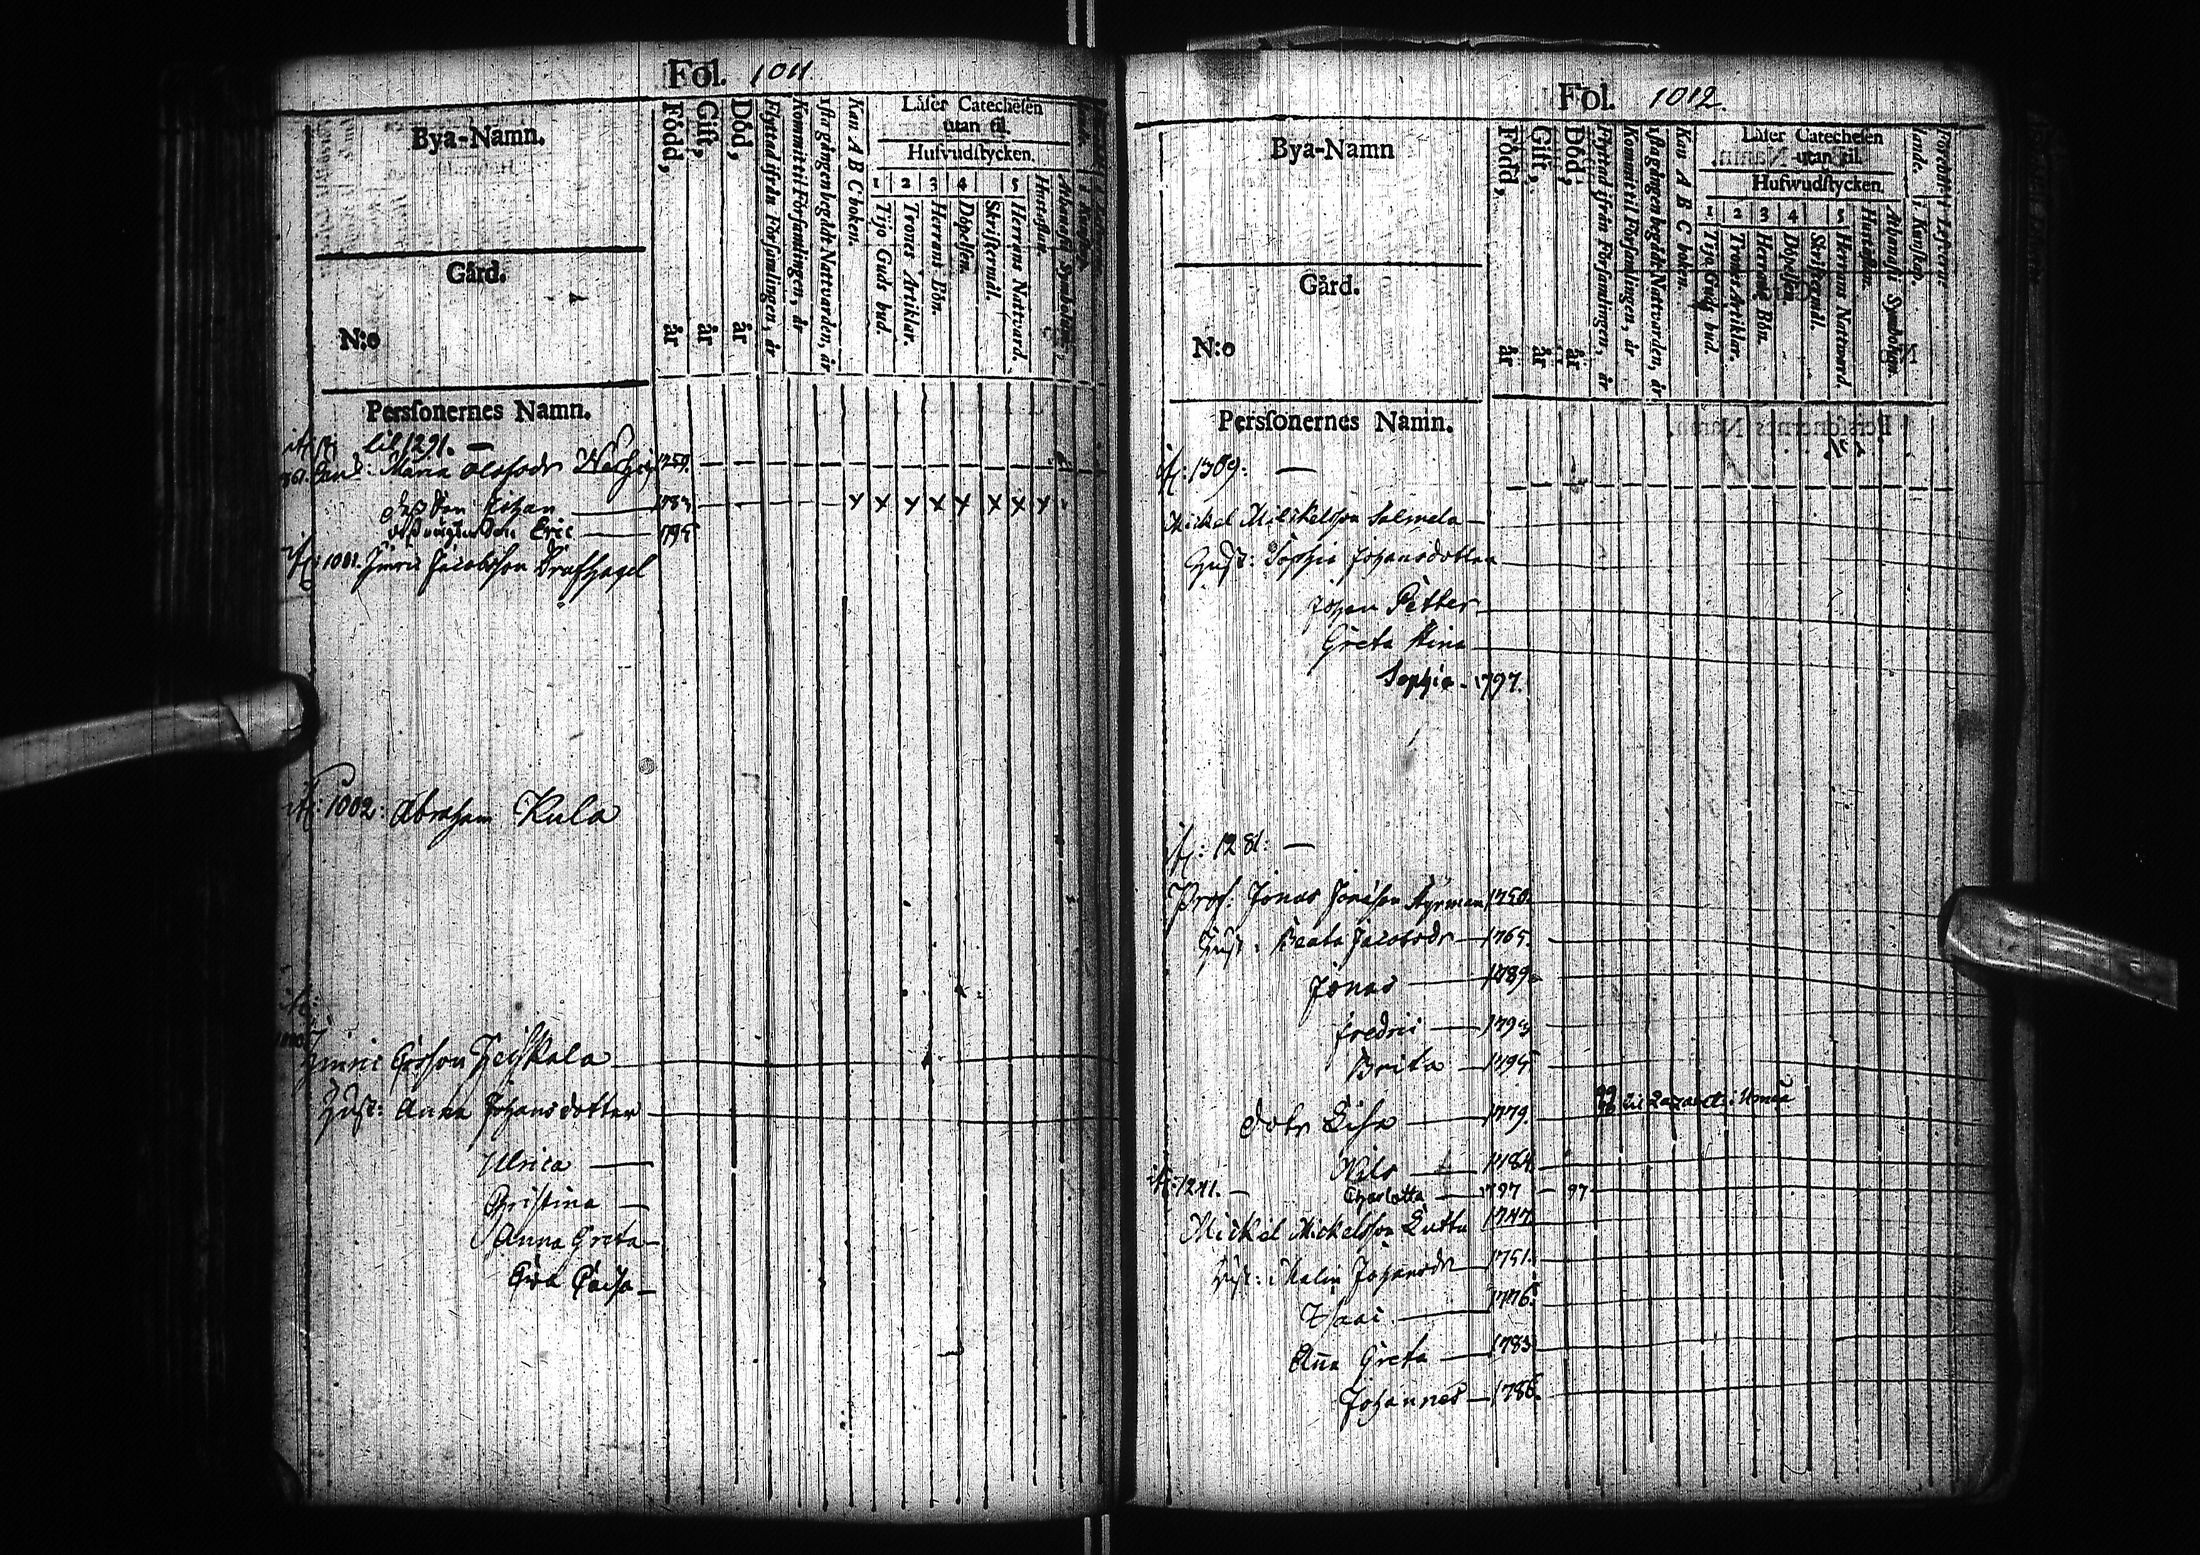 Fol. 1011
Bya-Namn.
Gård.
N:o
Född, år
Gift, år
Död, år
Flyttad ifrån Församlingen, år
Kommit til Församlingen, år
1sta gången begådt Nattvarden, år
Kan A B C boken.
Läser Catechesen
utan til.
Hufvudstycken.
1 2 3 4 5
Tijo Guds bud.
Trones Artiklar.
Herrans Bön.
Döpelsen.
Skriftermål.
Herrans Nattvard.
Hustaflan.
Athanasii Symbolum.
Perssonernes Namn.
lit 1291. —
Maria Olofsdr 1754.
Johan 178
Eric 1795
1001. Hinric Jacobsson
1002: Abraham Kula
Hinric Ersson Heickala
Hust: Anna Johansdotter
Ulrica
Christina
Anna Greta
Eva Caisa
Fol. 1012.
Bya-Namn
Gård.
N:o
Född, år
Gift, år
Död, år
Flyttad ifrån Församlingen, år
Kommit til Församlingen, år
1sta gången begådt Nattvarden, år
Kan A B C boken.
Läser Catechesen
utan til.
Hufwudstycken.
1 2 3 4 5
Tijo Guds bud.
Trones Artiklar.
Herrans Bön.
Döpelsen.
Skriftermål.
Herrans Nattward.
Hustaflan.
Athanasii Symbolum.
Perssonernes Namn.
1309: —
Mickel Mickelsson Salmela
Hust: Sophia Johansdotter
Johan Petter
Greta Stina
Sophia. 1797.
1281: —
Jonas Jonsson Styrman 1750.
Hust: Beata Jacobsdr 1765.
Jonas 1789
Fredric 179
Brita 1795
dotr Lisa 1779. til Lazaret i Umeå
Nils 1784.
1241. — Charlotta 1797 — 97
Mickel Mickelsson Luttu 1747.
Hust: Malin Johansdr 1751.
Isaac 1776.
Aña Greta 1783
Johannes 1786.